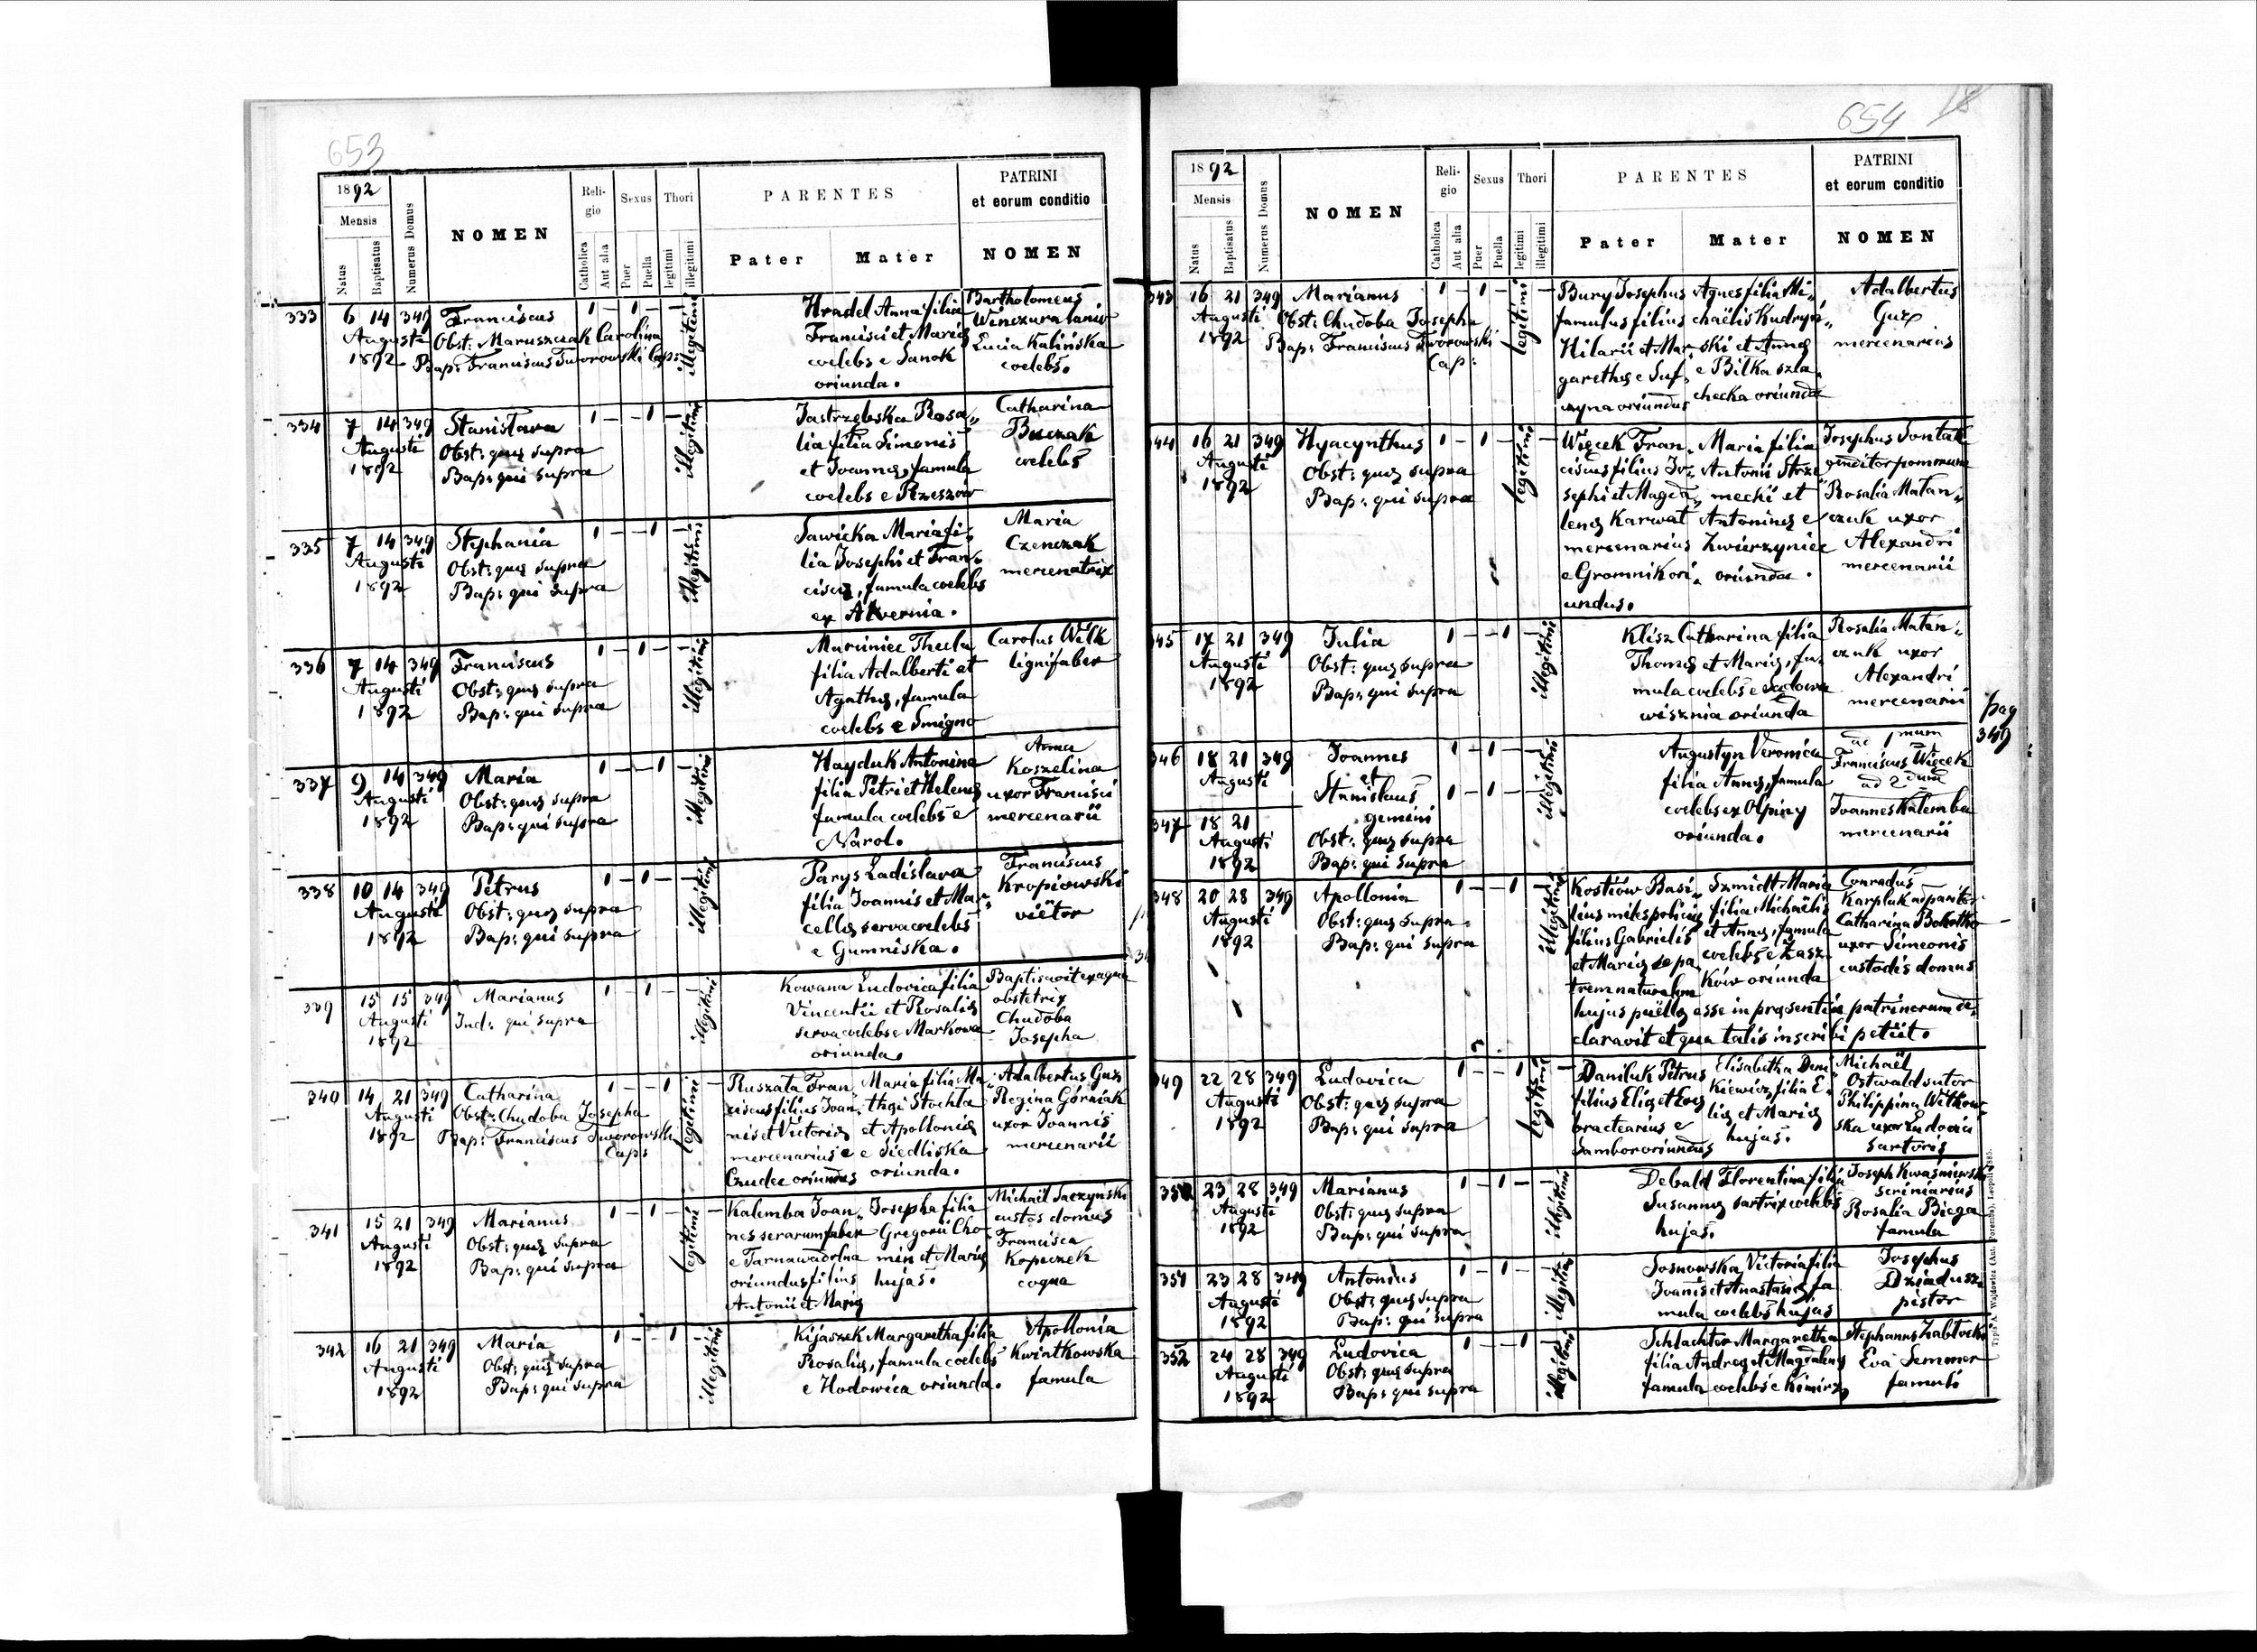 653
1892
Mensis
Natus
Baptisatus
Numerus Domus
NOMEN
Religio
Catholica
Aut alia
Sexus
Puer
Puella
Thori
legitimi
illegitimi
PARENTES
Pater
Mater
PATRINI
et eorum conditio
NOMEN
333
6 14 349
Augusti
1892
Franciscus
Obst: Maruszczak Carolina
Bap: Franciscus Tworowski Cap:
1 – 1 – –
illegitimi
Hradel Anna filia
Francisci et Mariæ
coelebs e Sanok
oriunda.
Bartholomeus
Winczura
Lucia Kalińska
coelebs.
334
7 14 349
Augusti
1892
Stanislava
Obst: quæ supra
Bap: qui supra
1 – – 1 –
illegitimi
Jastrzębska Rosa„
lia filia Simonis
et Joannæ, famula
coelebs e Rzeszów
Catharina
Buczak
coelebs
335
7 14 349
Augusti
1892
Stephania
Obst: quæ supra
Bap: qui supra
1 – – 1 –
illegitimi
Sawicka Maria fi„
lia Josephi et Fran„
ciscæ, famula coelebs
ex Alvernia.
Maria
Czenczak
mercenatrix
336
7 14 349
Augusti
1892
Franciscus
Obst: quæ supra
Bap: qui supra
1 – 1 – –
illegitimi
Marciniec Thecla
filia Adalberti et
Agathæ, famula
coelebs e Smigno
Carolus Wilk
lignifaber
337
9 14 349
Augusti
1892
Maria
Obst: quæ supra
Bap: qui supra
1 – – 1 –
illegitimi
Hayduk Antonina
filia Petri et Helenæ
famula coelebs e
Narol.
Anna
Koszelina
uxor Francisci
mercenarii
338
10 14 349
Augusti
1892
Petrus
Obst: quæ supra
Bap: qui supra
1 – 1 – –
illegitimi
Parys Ladislava
filia Joannis et Mar„
cellæ serva coelebs
e Gumniska.
Franciscus
Kropiowski
viëtor
339
15 15 349
Augusti
1892
Marianus
Ind: qui supra
1 – 1 – –
illegitimi
Kowana Ludovica filia
Vincentii et Rosaliæ
serva coelebs e Markowa
oriunda.
Baptisavit ex aqua
obstetrix
Chudoba
Josepha
340
14 21 349
Augusti
1892
Catharina
Obst: Chudoba Josepha
Bap: Franciscus Tworowski
Cap:
1 – – 1
legitimi
–
Ruszała Fran„
ciscus filius Joan„
nis et Victoriæ
mercenarius e
Czudec oriundus
Maria filia Ma„
thæi Stochla
et Apolloniæ
e Siedliska
oriunda.
Adalbertus Guz
Regina Górniak
uxor Joannis
mercenarii
341
15 21 349
Augusti
1892
Marianus
Obst: quæ supra
Bap: qui supra
1 – 1 –
legitimi
–
Kalemba Joan„
nes serarum faber
e Tarnawa dolna
oriundus filius
Antonii et Mariæ
Josepha filia
Gregorii Cho„
min et Mariæ
hujas.
Michaël Saczyński
custos domus
Francisca
Kopeczek
coqua
342
16 21 349
Augusti
1892
Maria
Obst: quæ supra
Bap: qui supra
1 – – 1 –
illegitimi
Kijaszek Margaretha filia
Rosaliæ, famula coelebs
e Hodowica oriunda.
Apollonia
Kwiatkowska
famula
654
18
1892
Mensis
Natus
Baptisatus
Numerus Domus
NOMEN
Religio
Catholica
Aut alia
Sexus
Puer
Puella
Thori
legitimi
illegitimi
PARENTES
Pater
Mater
PATRINI
et eorum conditio
NOMEN
343
16 21 349
Augusti
1892
Marianus
Obst: Chudoba Josepha
Bap: Franciscus Tworowski
Cap:
1 – 1 –
legitimi
–
Bury Josephus
famulus filius
Hilarii et Mar„
garethæ e Suf„
czyna oriundus
Agnes filia Mi„
chaëlis Kudryń„
ski et Annæ
e Bilka szla„
checka oriunda
Adalbertus
Guz
mercenarius
344
16 21 349
Augusti
1892
Hyacynthus
Obst: quæ supra
Bap: qui supra
1 – 1 –
legitimi
–
Więcek Fran„
ciscus filius Jo„
sephi et Magda„
lenæ Karwat
mercenarius
e Gromnik ori„
undus.
Maria filia
Antonii Strze„
mecki et
Antoninæ e
Zwierzyniec
oriunda.
Josephus Sontak
venditor pomorum
Rosalia Matan„
czuk uxor
Alexandri
mercenarii
345
17 21 349
Augusti
1892
Julia
Obst: quæ supra
Bap: qui supra
1 – – 1 –
illegitimi
Klisz Catharina filia
Thomæ et Mariæ, fa„
mula coelebs e Sadowa
wisznia oriunda
Rosalia Matan„
czuk uxor
Alexandri
mercenarii
pag
349
346
18 21 349
Augusti
Joannes
et
Stanislaus
gemini
347
18 21
Augusti
1892
Obst: quæ supra
Bap: qui supra
1 – 1 – –
1 – 1 – –
illegitimi
Augustyn Veronica
filia Annæ, famula
coelebs ex Olpiny
oriunda.
ad 1mum
Franciscus Więcek
ad 2dum
Joannes Kalemba
mercenarii
348
20 28 349
Augusti
1892
Apollonia
Obst: quæ supra
Bap: qui supra
1 – – 1 –
illegitimi
Kostiów Basi„
lius miles policiæ
filius Gabrielis
et Mariæ se pa„
trem naturalem
Szmidt Maria
filia Michaëlis
et Annæ, famula
coelebs e Zasz„
ków oriunda
hujus puëllæ esse in præsentia patrinorum de„
claravit et qua talis inscribi petiit.
Conradus
Karpluk apparitor
Catharina
uxor Simeonis
custodis domus
349
22 28 349
Augusti
1892
Ludovica
Obst: quæ supra
Bap: qui supra
1 – – 1
legitimi
–
Daniluk Petrus
filius Eliæ et Evæ
bractearius e
Sambor oriundus
Elisabetha Dem„
kiewicz filia E„
liæ et Mariæ
hujas.
Michaël
Ostwald sutor
Philippina Witkow„
ska uxor Ludovici
sartoris
350
23 28 349
Augusti
1892
Marianus
Obst: quæ supra
Bap: qui supra
1 – 1 –
illegitimi
Debald Florentina filia
Susannæ sartrix coelebs
hujas.
Joseph Kwaśniewski
scriniarius
Rosalia Biega
famula
351
23 28 349
Augusti
1892
Antonius
Obst: quæ supra
Bap: qui supra
1 – 1 –
illegitimi
Sosnowska Victoria filia
Joannis et Anastasiæ fa
mula coelebs hujas
Josephus
Dziadusz
pistor
352
24 28 349
Augusti
1892
Ludovica
Obst: quæ supra
Bap: qui supra
1 – – 1
illegitimi
Schlachter Margaretha
filia Andreæ et Magdalenæ
famula coelebs e Kimirz
Stephanus Zabłocki
Eva Semmer
famuli